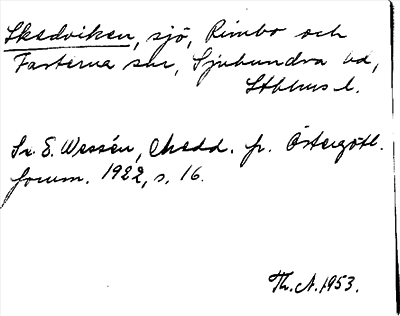 Skedviken, sjö, Rimbo och
Fasterna snr, Sjuhundra hd,
Stblms l.
Se E. Wessén, Medd. fr. Östergötl.
fornm. 1922, s. 16.
Th. A. 1953.